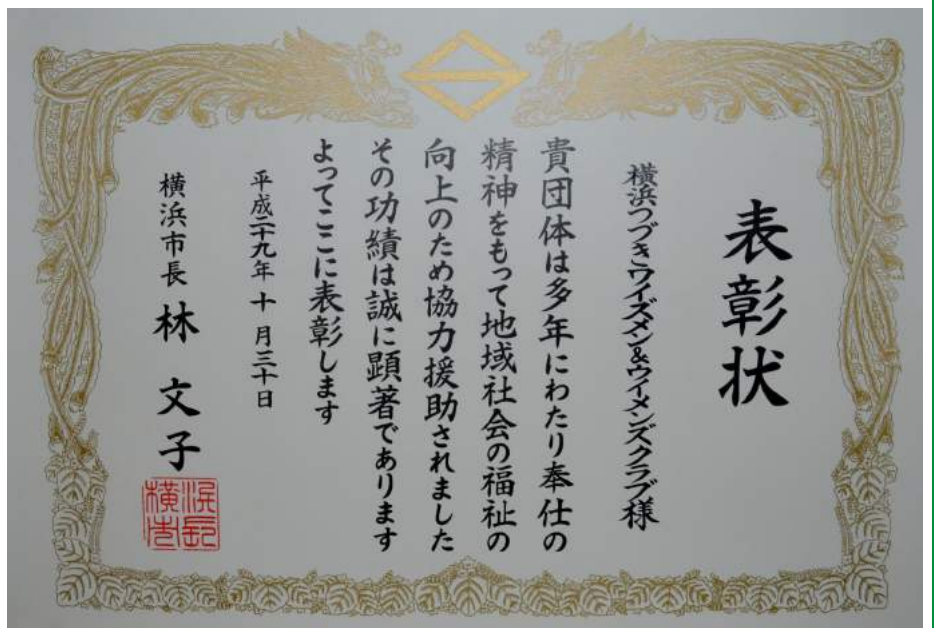 表彰状
横浜つづきワイズメン&ウイメンズクラブ様
貴団体は多年にわたり奉仕の
精神をもって地域社会の福祉の
向上のため協力援助されました
その功績は誠に顕著であります
よってここに表彰します
平成二十九年十月三十日
横浜市長 林文子